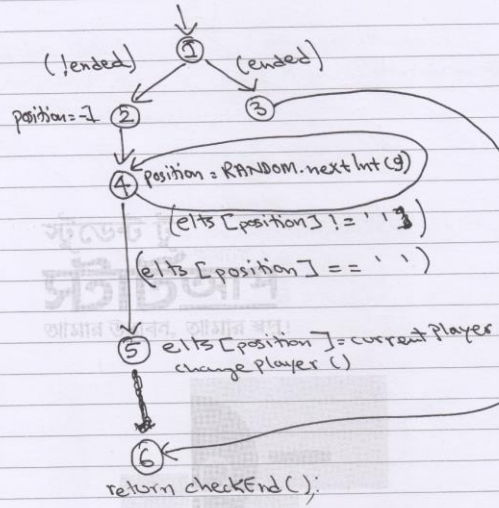 1
(!ended) (ended)
position=-1 2 3
4 position = RANDOM.nextInt(9)
(elts [position] != ' ')
(elts [position] == ' ')
স্টুডেন্ট টু
স্টার্টআপ
আমার উদ্ভাবন, আমার স্বপ্ন!
5 elts [position] = current Player
change player ()
6
return checkEnd();